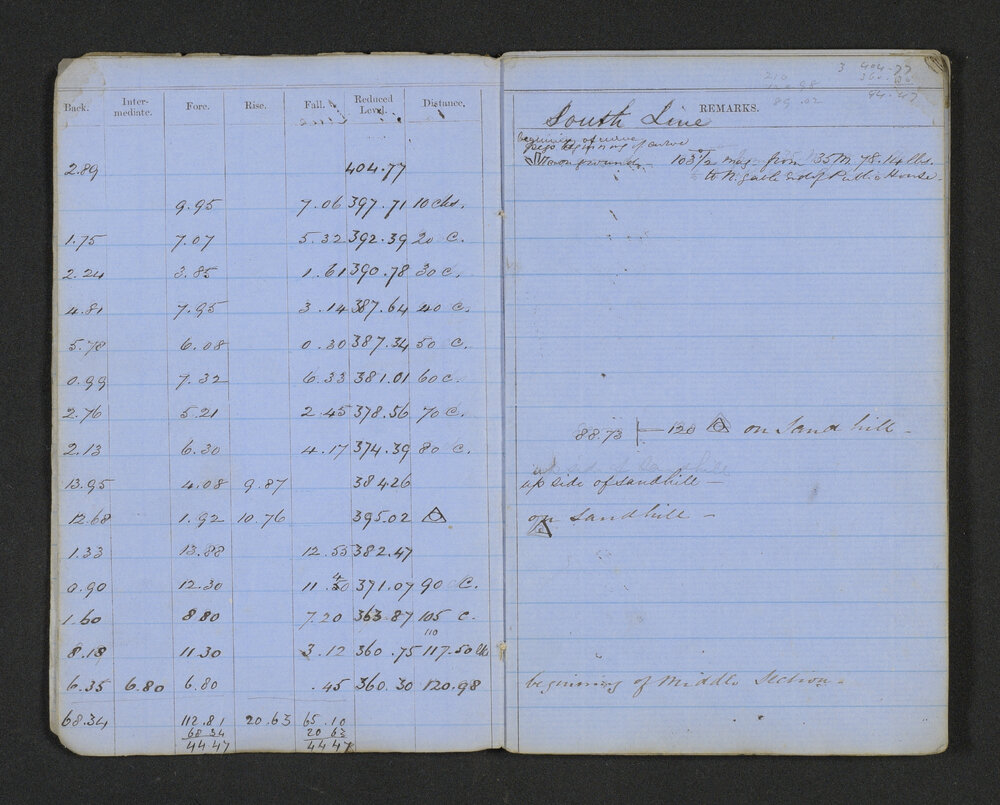 Back. Inter-mediate. Fore. Rise. Fall. Reduced Level. Distance.
2.89 404.77
9.95 7.06 397.71 10 chs.
1.75 7.07 5.32 392.39 20 C.
2.24 3.85 1.61 390.78 30 C.
4.81 7.95 3.14 387.64 40 C.
5.78 6.08 0.30 387.34 50 C.
0.99 7.32 6.33 381.01 60 C.
2.76 5.21 2.45 378.56 70 C.
2.13 6.30 4.17 374.39 80 C.
13.95 4.08 9.87 384 26
12.68 1.92 10.76 395.02
1.33 13.88 12.55 382.47
0.90 12.30 11.40 371.07 90 C.
1.60 8 80 7.20 363.87 105 C.
110
8.18 11.30 3.12 360.75 117.50
6.35 6.80 6.80 .45 360.30 120.98
68.34 112.81 20.63 65.10
68 34 20 63
44 47 44 47
3 404.77
44.47
89.02
REMARKS.
South Line
beginning of curve
pegs beginning of curve
103 1/2 mag. from 35 M. 78.14 lks.
to N. gable end of Public House
88.73 120 on Sand hill
up side of Sandhill
on Sandhill
beginning of Middle Section